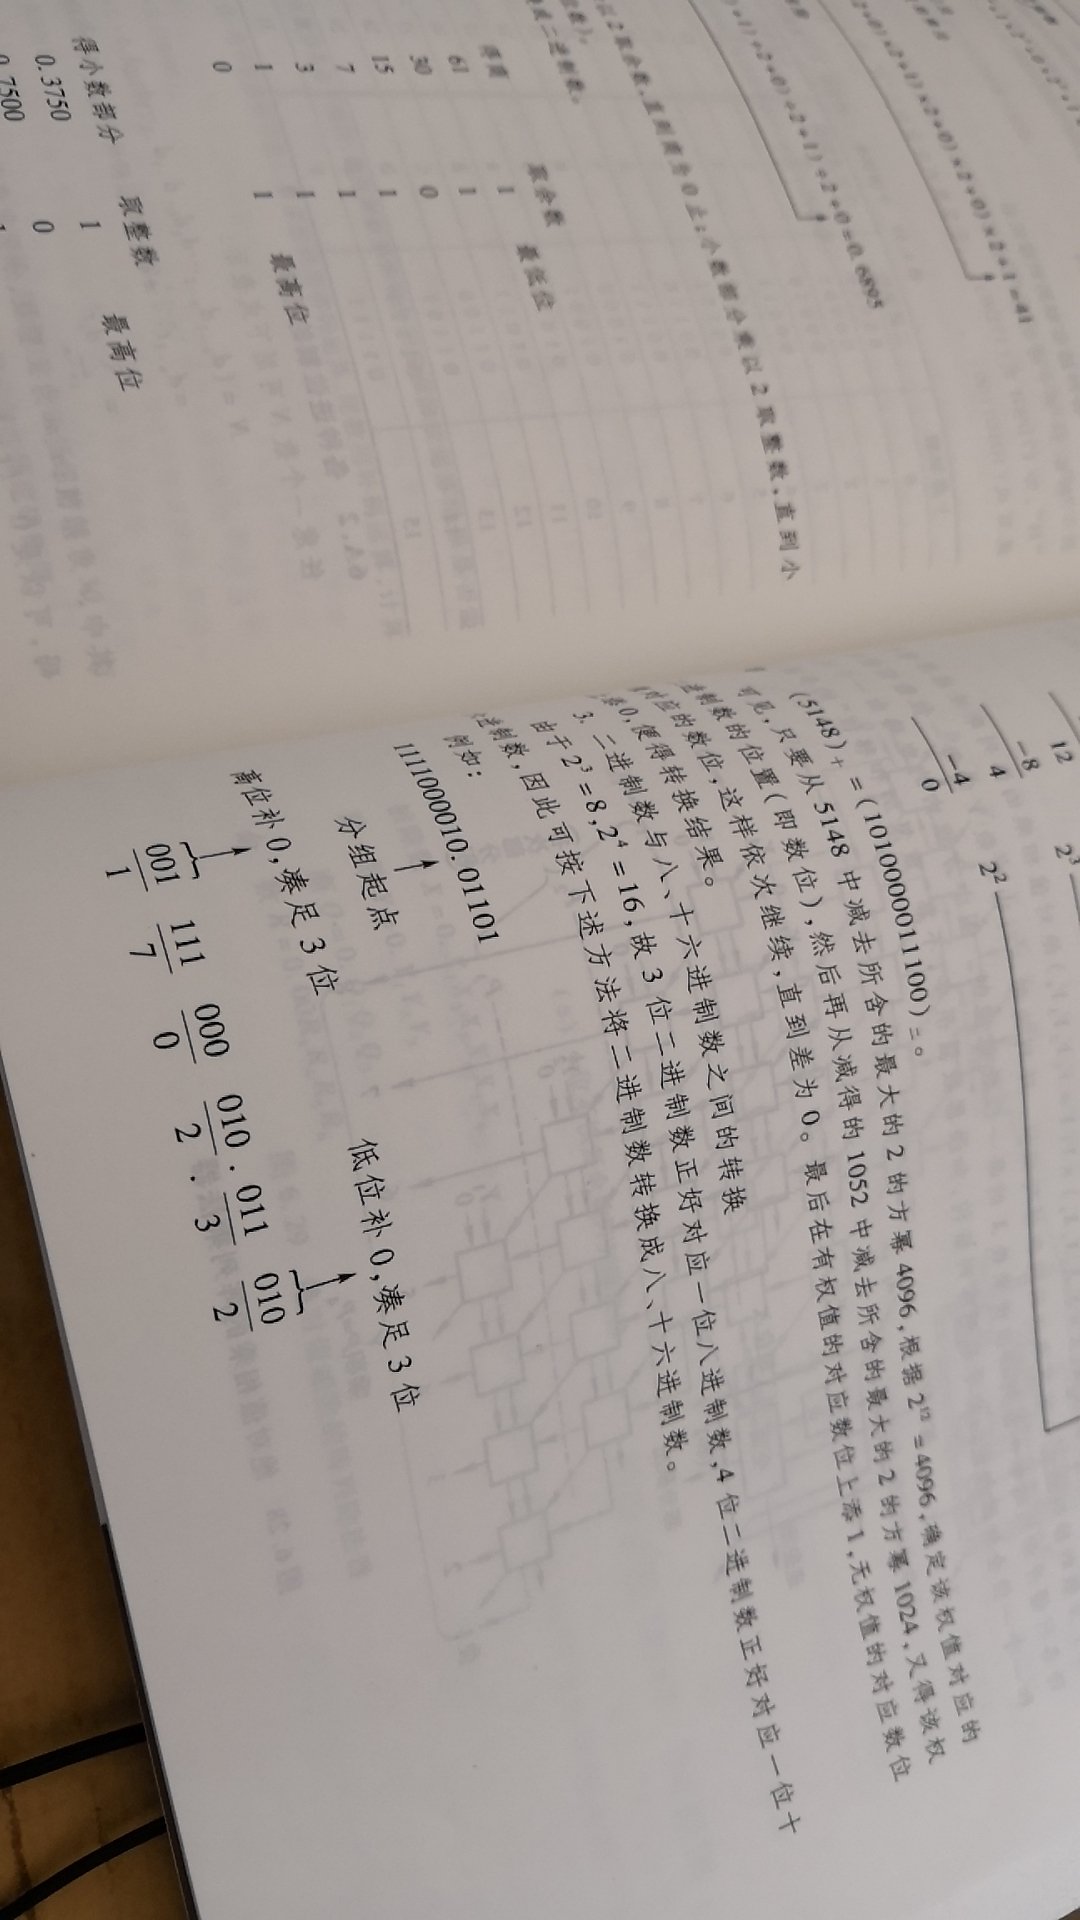 +1)÷2+0)÷2+1)÷2+0=0.6895
×2+0)×2+1)×2+0)×2+0)×2+1=41
以2取余数,直到商为0止;小数部分乘以2取整数,直到小
成二进制数。
得商 取余数
61 1 最低位
30 1
15 0
7 1
3 1
1 1
0 1 最高位
得小数部分 取整数
0.3750 1 最高位
0.7500 0
1
12 2³
-8
4 2²
-4
0
(5148)₊=(1010000011100)₌。
可见,只要从5148中减去所含的最大的2的方幂4096,根据2¹²=4096,确定该权值对应的
进制数的位置(即数位),然后再从减得的1052中减去所含的最大的2的方幂1024,又得该权
对应的数位,这样依次继续,直到差为0。最后在有权值的对应数位上添1,无权值的对应数位
添0,便得转换结果。
3. 二进制数与八、十六进制数之间的转换
由于2³=8,2⁴=16,故3位二进制数正好对应一位八进制数,4位二进制数正好对应一位十
进制数,因此可按下述方法将二进制数转换成八、十六进制数。
例如:
1111000010.01101
分组起点
高位补0,凑足3位 低位补0,凑足3位
001 111 000 010 . 011 010
1 7 0 2 . 3 2